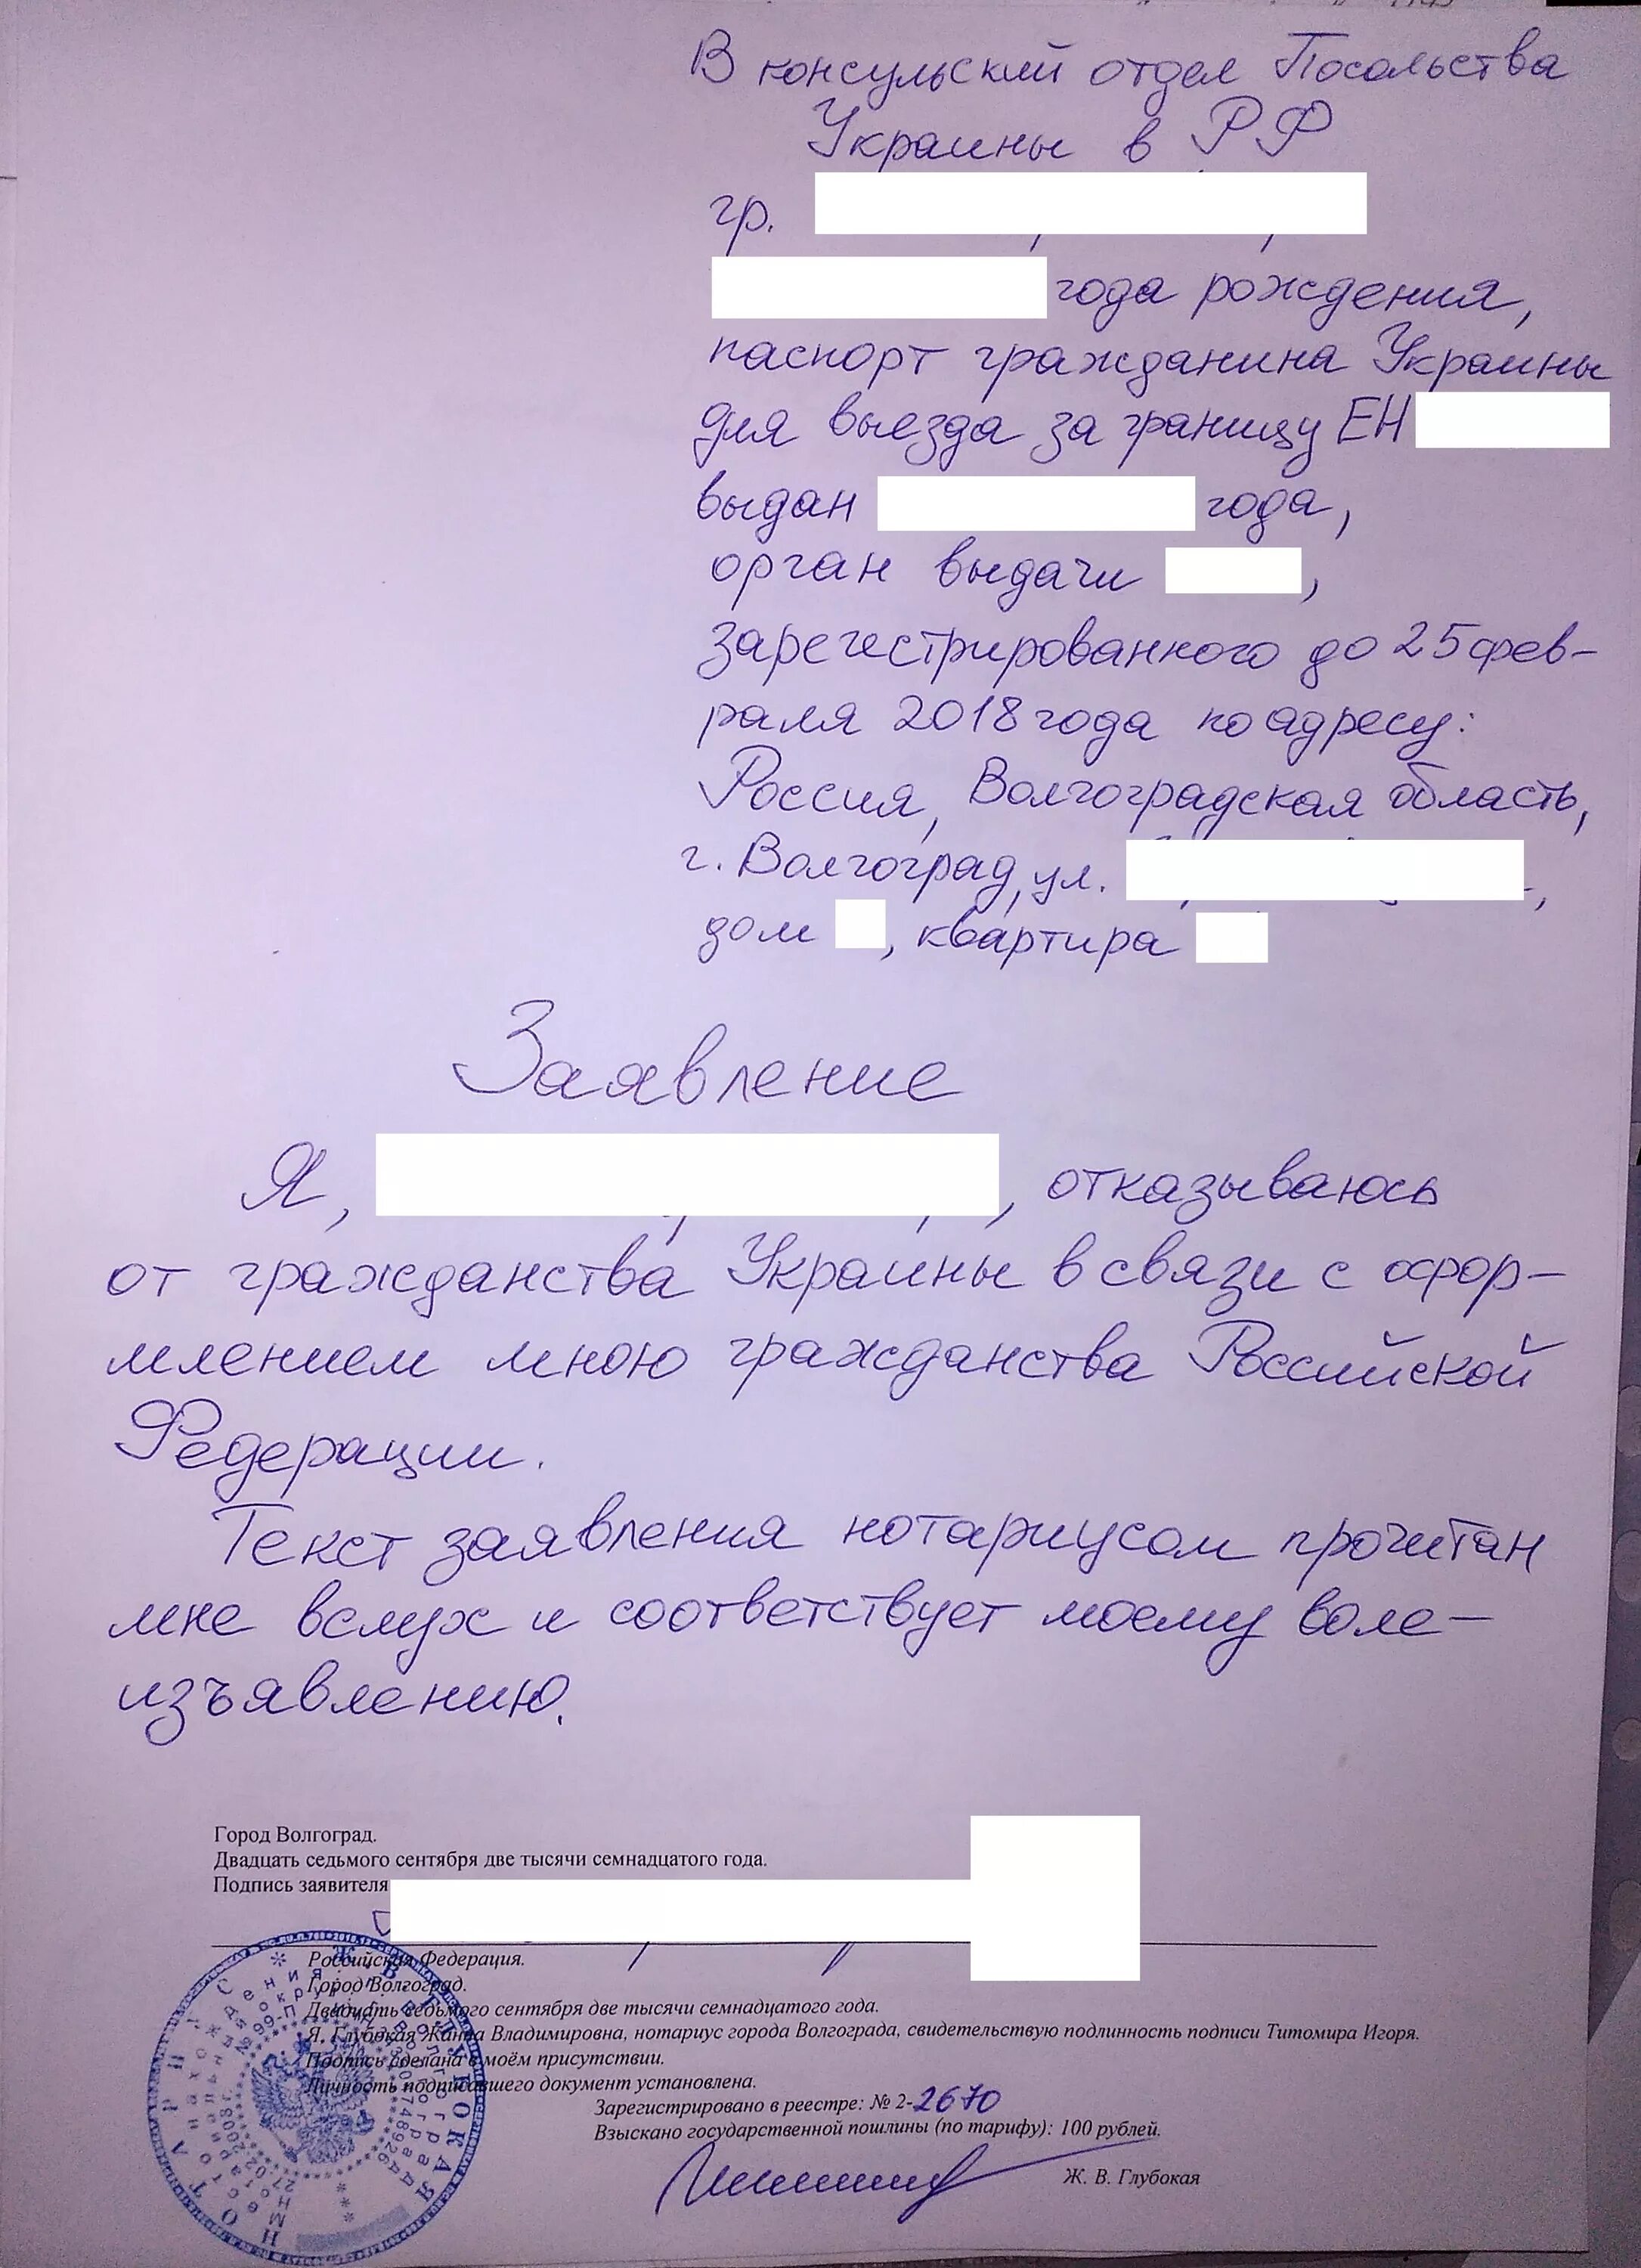 В консульский отдел Посольства
Украины в РФ
гр.
года рождения,
паспорт гражданина Украины
для выезда за границу ЕН
выдан года,
орган выдачи ,
зарегестрированного до 25 фев-
раля 2018 года по адресу:
Россия, Волгоградская область,
г. Волгоград, ул. ,
дом , квартира
Заявление
Я, , отказываюсь
от гражданства Украины в связи с офор-
млением мною гражданства Российской
Федерации.
Текст заявления нотариусом прочитан
мне вслух и соответствует моему воле-
изъявлению.
Город Волгоград.
Двадцать седьмого сентября две тысячи семнадцатого года.
Подпись заявителя
Российская Федерация.
Город Волгоград.
Двадцать седьмого сентября две тысячи семнадцатого года.
Я, Глубокая Жанна Владимировна, нотариус города Волгограда, свидетельствую подлинность подписи Титомира Игоря.
Подпись сделана в моём присутствии.
Личность подписавшего документ установлена.
Зарегистрировано в реестре: № 2-2670
Взыскано государственной пошлины (по тарифу): 100 рублей.
Ж. В. Глубокая